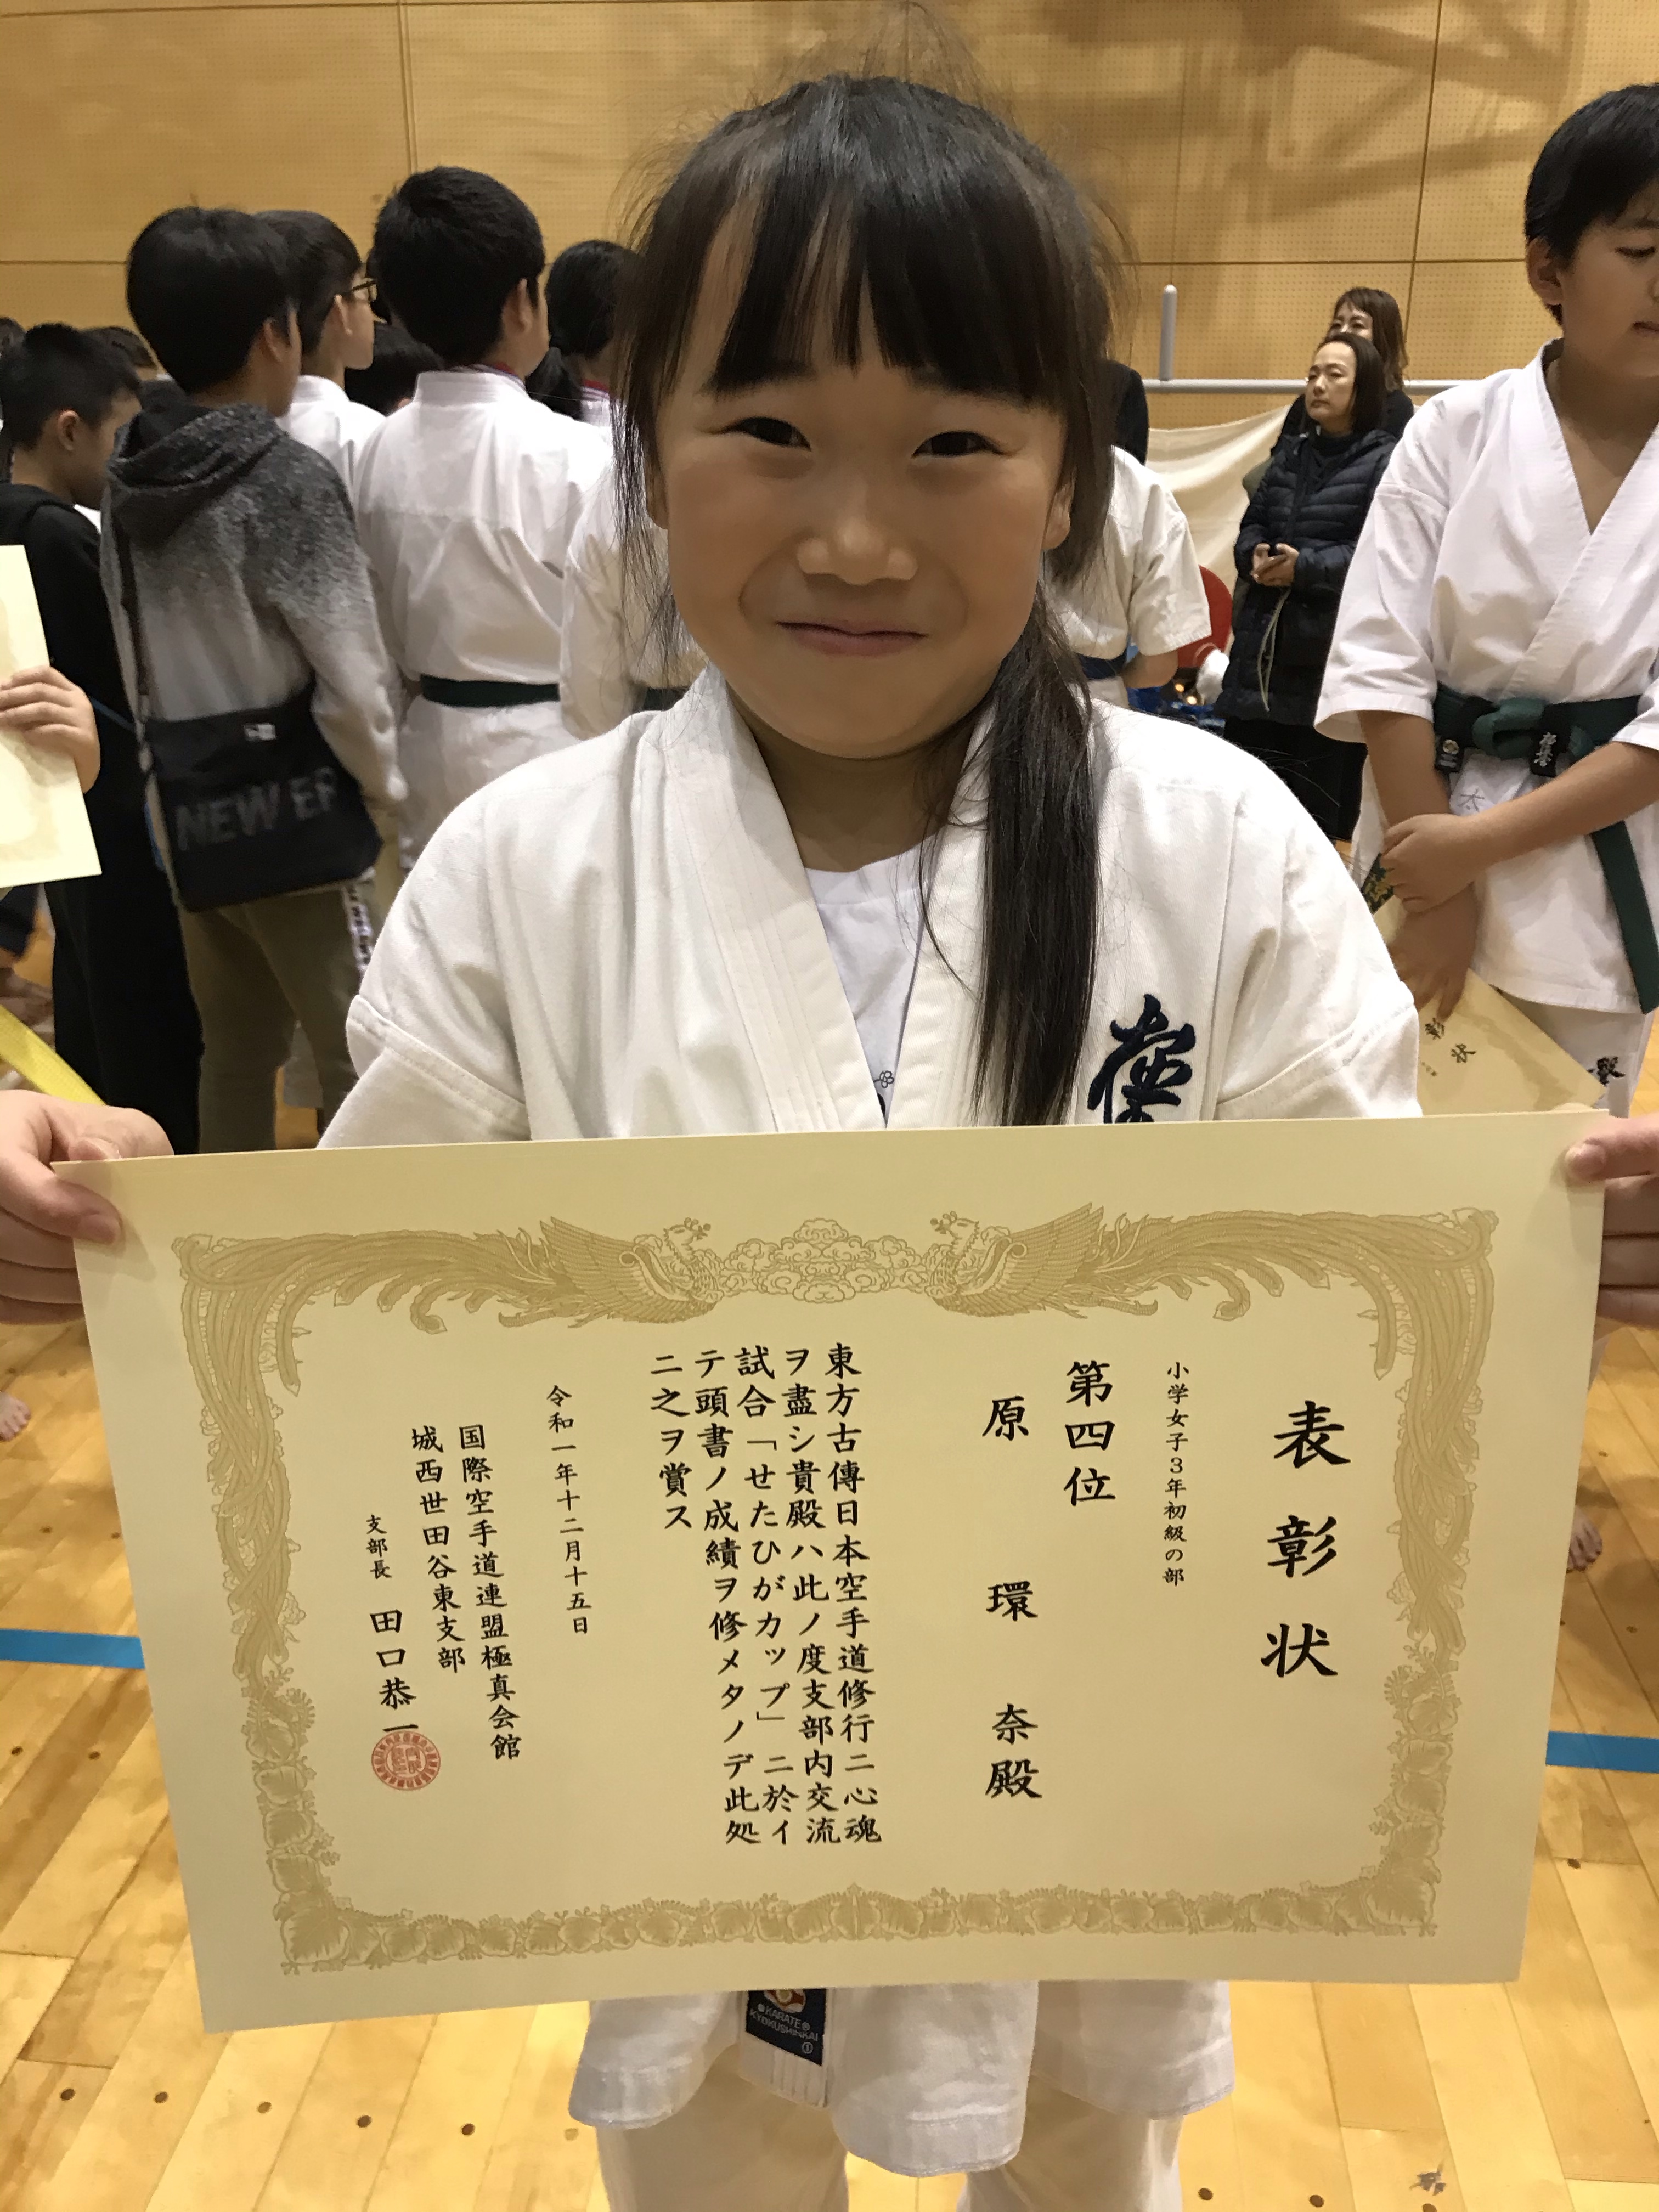 表彰状
小学女子3年初級の部
第四位
原 環 奈殿
東方古傳日本空手道修行ニ心魂
ヲ盡シ貴殿ハ此ノ度支部内交流
試合「せたひがカップ」ニ於イ
テ頭書ノ成績ヲ修メタノデ此処
ニ之ヲ賞ス
令和一年十二月十五日
国際空手道連盟極真会館
城西世田谷東支部
支部長 田口恭一
NEW ER
彰状
KARATE
KYOKUSHINKAI